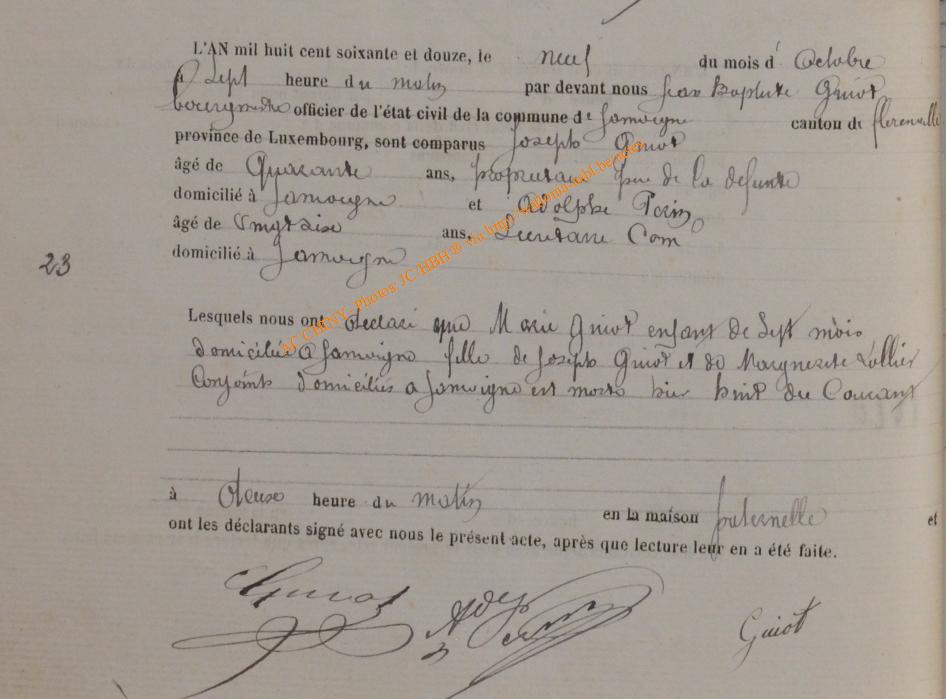 L'AN mil huit cent soixante et douze, le neuf du mois d' Octobre
à Sept heure du matin par devant nous Jean Baptiste Guiot
bourgmestre officier de l'état civil de la commune de Jamoigne canton de florenville
province de Luxembourg, sont comparus Joseph Guiot
âgé de Quarante ans, propriétaire père de la defunte
domicilié à Jamoigne et Adolphe
âgé de Vingt six ans, Secretaire Com
domicilié à Jamoigne
23
Lesquels nous ont déclaré que Marie Guiot enfant de Sept mois
domiciliée à Jamoigne fille de Joseph Guiot et de Marguerite Lallier
Conjoints domiciliés a Jamoigne est morte hier huit du Courant
à deux heure du matin en la maison paternelle et
ont les déclarants signé avec nous le présent acte, après que lecture leur en a été faite.
Guiot Guiot